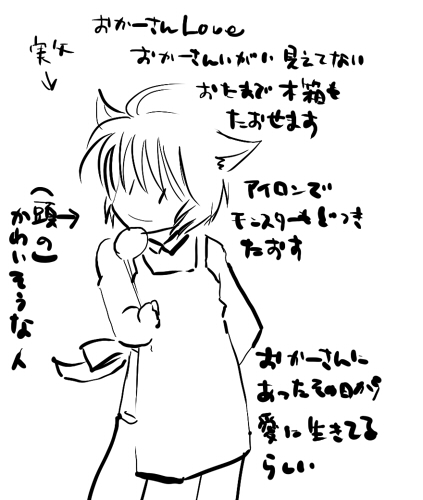 おかーさんLove
おかーさんいがい見えてない
おたまで木箱も
たおせます
実矢
(頭の)
かわいそうな人
アイロンで
モンスターもどつき
たおす
おかーさんに
あったその日から
愛に生きてる
らしい